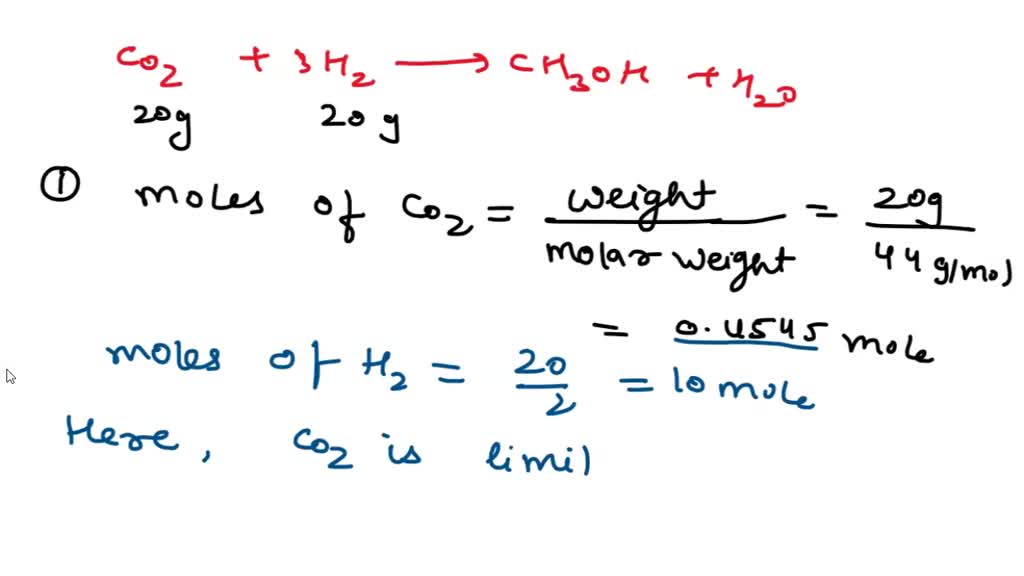 CO2 + 3H2 → CH3OH + H2O
20g 20 g
① moles of CO2 = weight / molar weight = 20g / 44 g/mol
= 0.4545 mole
moles of H2 = 20 / 2 = 10 mole
Here, CO2 is limil